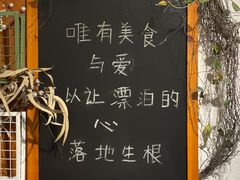 唯有美食
与爱
从让漂泊的
心
落地生根